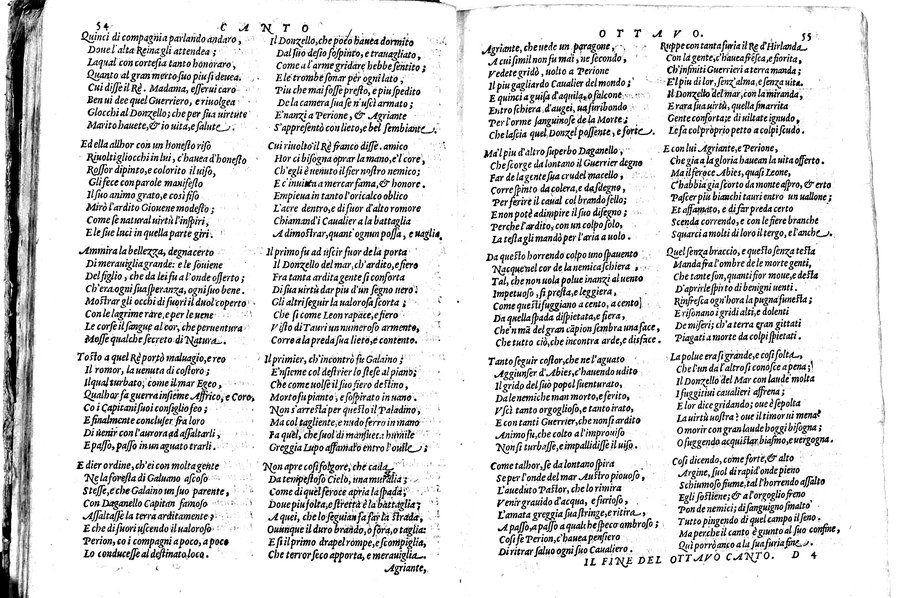 54
CANTO
Quinci di compagnia parlando andaro,
Doue l'alta Reina gli attendea;
La qual con cortesia tanto honoraro,
Quanto al gran merto suo piu si deuea.
Cui disse il Rè. Madama, esserui caro
Ben ui dee quel Guerriero, e riuolgea
Gl'occhi al Donzello; che per sua uirtute
Marito hauete, & io uita, e salute.
Ed ella allhor con un honesto riso
Riuolti gliocchi in lui, c'hauea d'honesto
Rossor dipinto, e colorito il uiso,
Gli fece con parole manifesto
Il suo animo grato, e così fiso
Mirò l'ardito Giouene modesto;
Come se natural uirtù l'inspiri,
E le sue luci in quella parte giri.
Ammira la bellezza, degna certo
Di merauiglia grande: e le souiene
Del figlio, che da lei fu a l'onde offerto;
Ch'era ogni sua speranza, ogni suo bene.
Mostrar gli occhi di fuori il duol coperto
Con le lagrime rare, e per le uene
Le corse il sangue al cor, che peruentura
Mosse qualche secreto di Natura.
Tosto a quel Rè portò maluagio, e reo
Il romor, la uenuta di costoro;
Il qual turbato, come il mar Egeo,
Qualhor fa guerra insieme Affrico, e Coro,
Co i Capitani suoi consiglio feo;
E finalmente concluser fra loro
Di uenir con l'aurora ad assaltarli,
E passo, passo in un aguato trarli.
E dier ordine, ch'ei con molta gente
Ne la foresta di Galuano ascoso
Stesse, e che Galaino un suo parente,
Con Daganello Capitan famoso
Assaltasse la terra arditamente;
E che di fuori uscendo il ualoroso
Perion, co i compagni a poco, a poco
Lo conducesse al destinato loco.
Il Donzello, che poco hauea dormito
Dal suo desio sospinto, e trauagliato,
Come a l'arme gridare hebbe sentito;
E le trombe sonar per ogni lato,
Piu che mai fosse presto, e piu spedito
De la camera sua se n'uscì armato;
E'nanzi a Perione, & Agriante
S'appresentò con lieto, e bel sembiante.
Cui riuolto il Rè franco disse. amico
Hor ci bisogna oprar la mano, e'l core,
Ch'egli è uenuto il fier nostro nemico;
E c'inuita a mercar fama, & honore.
Empieua in tanto l'oricalco oblico
L'aere dentro, e di fuor d'alto romore
Chiamand'i Caualier a la battaglia
A dimostrar, quant'ogn'un possa, e uaglia.
Il primo fu ad uscir fuor de la porta
Il Donzello del mar, ch'ardito, e fiero
Fra tanta ardita gente si conforta
Di sua uirtù dar piu d'un segno uero.
Gli altri seguir la ualorosa scorta;
Che sì come Leon rapace, e fiero
Visto di Tauri un numeroso armento,
Corre a la preda sua lieto, e contento.
Il primier, ch'incontrò fu Galaino;
E'nsieme col destrier lo stese al piano;
Che come uolse il suo fiero destino,
Morto fu pianto, e sospirato in uano.
Non s'arresta per questo il Paladino,
Ma col tagliente, e nudo ferro in mano
Fa quel, che suol di mansueta humile
Greggia Lupo affamato entro l'ouile;
Non apre così folgore, che cada
Da tempestoso Cielo, una muralia;
Come di quel feroce apria la spada;
Doue piu folta, e stretta è la battaglia;
A quei, che lo seguian fa far la strada,
Ouunque il duro brando, o fora, o taglia:
E sì il primo drapel rompe, e scompiglia,
Che terror seco apporta, e merauiglia.
Agriante,
OTTAVO.
55
Agriante, che uede un paragone,
A cui simil non fu mai, ne secondo,
Vedete gridò, uolto a Perione
Il piu gagliardo Caualier del mondo;
E quinci a guisa d'aquila, o falcone
Entro schiera, d'augei, ua furibondo
Per l'orme sanguinose de la Morte;
Che lascia quel Donzel possente, e forte.
Ma'l piu d'altro superbo Daganello,
Che scorge da lontano il Guerrier degno
Far de la gente sua crudel macello,
Corre spinto da colera, e da sdegno,
Per ferire il caual col brando fello;
E non potè adimpire il suo disegno;
Perche l'ardito, con un colpo solo,
La testa gli mandò per l'aria a uolo.
Da questo horrendo colpo uno spauento
Nacque nel cor de la nemica schiera,
Tal, che non uola polue inanzi al uento
Impetuoso, sì presta, e leggiera,
Come questi fuggiano a cento, a cento
Da quella spada dispietata, e fiera,
Che'n mã del gran cãpion sembra una face,
Che tutto ciò, che incontra arde, e disface.
Tanto seguir costor, che ne l'aguato
Aggiunser d'Abies, c'hauendo udito
Il grido del suò popol suenturato,
Da le nemiche man morto, e ferito,
Vscì tanto orgoglioso, e tanto irato,
E con tanti Guerrier, che non sì ardito
Animo fu, che colto a l'improuiso
Non si turbasse, e impallidisse il uiso.
Come talhor, se da lontano spira
Se per l'onde del mar Austro piouoso,
L'aueduto Pastor, che lo rimira
Venir grauido d'acqua, e furioso,
L'amata greggia sua stringe, e ritira,
A passo, a passo a qualche speco ombroso;
Così fè Perion, c'hauea pensiero
Di ritrar saluo ogni suo Caualiero.
Ruppe con tanta furia il Re d'Hirlanda
Con la gente, c'hauea fresca, e fiorita,
Ch'infiniti Guerrieri a terra manda;
E'l piu di lor, senz'alma, e senza uita.
Il Donzello del mar, con la miranda,
E rara sua uirtù, quella smarrita
Gente conforta; e di uiltate ignudo,
Le fa col próprio petto a colpi scudo.
E con lui Agriante, e Perione,
Che già a la gloria hauean la uita offerto.
Ma il feroce Abies, quasi Leone,
C'habbia già scorto da monte aspro, & erto
Pascer piu bianchi tauri entro un uallone;
Et affamato, e di far preda certo
Scenda correndo, e con le fiere branche
Squarci a molti di loro il tergo, e l'anche.
Quel senza braccio, e questo senza testa
Manda fra l'ombre de le morte genti,
Che tante son, quanti fior moue, e desta
D'aprir lo spirto di benigni uenti.
Rinfresca ogn'hora la pugna funesta;
E risonano i gridi alti, e dolenti
De miseri; ch'a terra eran gittati
Piagati a morte da colpi spietati.
La polue era sì grande, e così folta,
Che l'un da l'altro si conosce a pena;
Il Donzello del Mar con laude molta
I fuggitiui caualieri affrena;
E lor dice gridando; oue è sepolta
La uirtù uostra? oue il timor ui mena?
O morir con gran laude hoggi bisogna;
O fuggendo acquistar, biasmo, e uergogna.
Così dicendo, come forte, & alto
Argine, suol di rapid'onde pieno
Schiumoso fiume, tal l'horrendo assalto
Egli sostiene; & a l'orgoglio freno
Pon de nemici; di sanguigno smalto
Tutto pingendo di quel campo il seno.
Ma perche il canto è giunto al suo confine,
Qui porrò anco a la sua furia fine.
IL FINE DEL OTTAVO CANTO. D 4